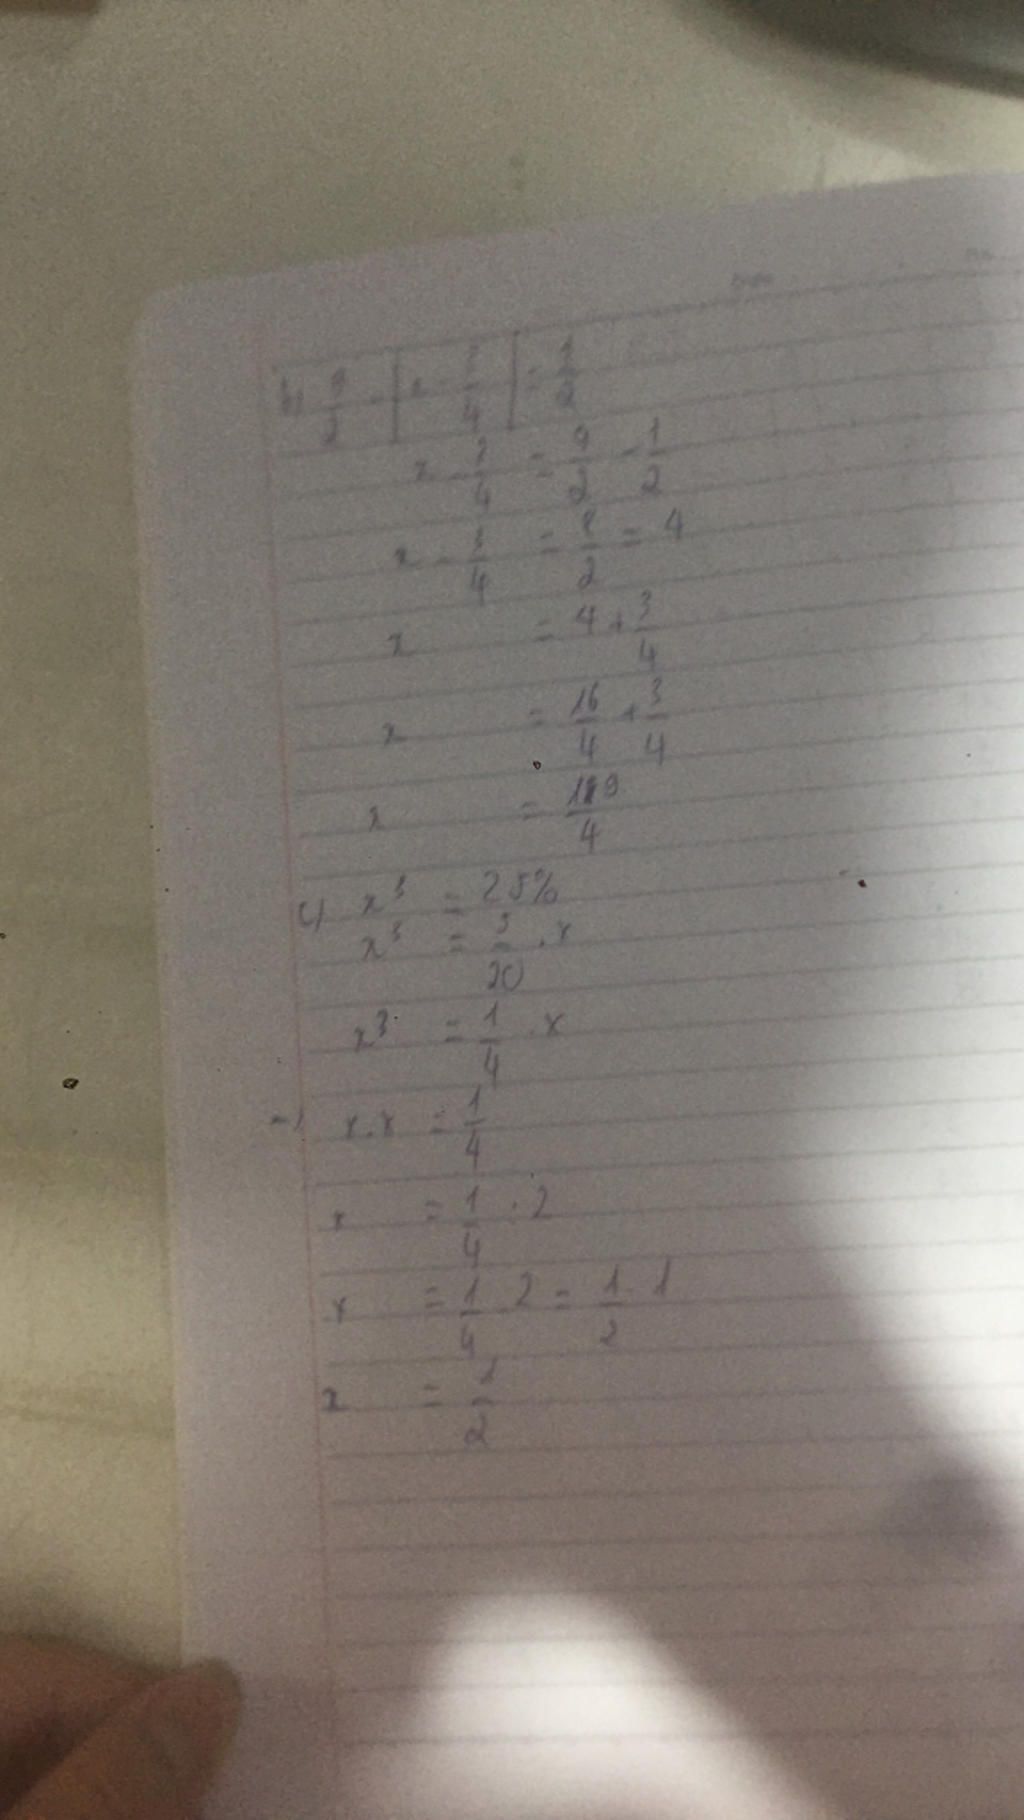 b) 9/2 - | x - 3/4 | = 1/2
x - 3/4 = 9/2 - 1/2
x - 3/4 = 8/2 = 4
x = 4 + 3/4
x = 16/4 + 3/4
x = 19/4
c) x³ = 25%
x³ = 5/20 . x
x³ = 1/4 . x
x.x = 1/4
x = 1/4 . 2
x = 1/4 . 2 = 1/2 . 1
x = 1/2